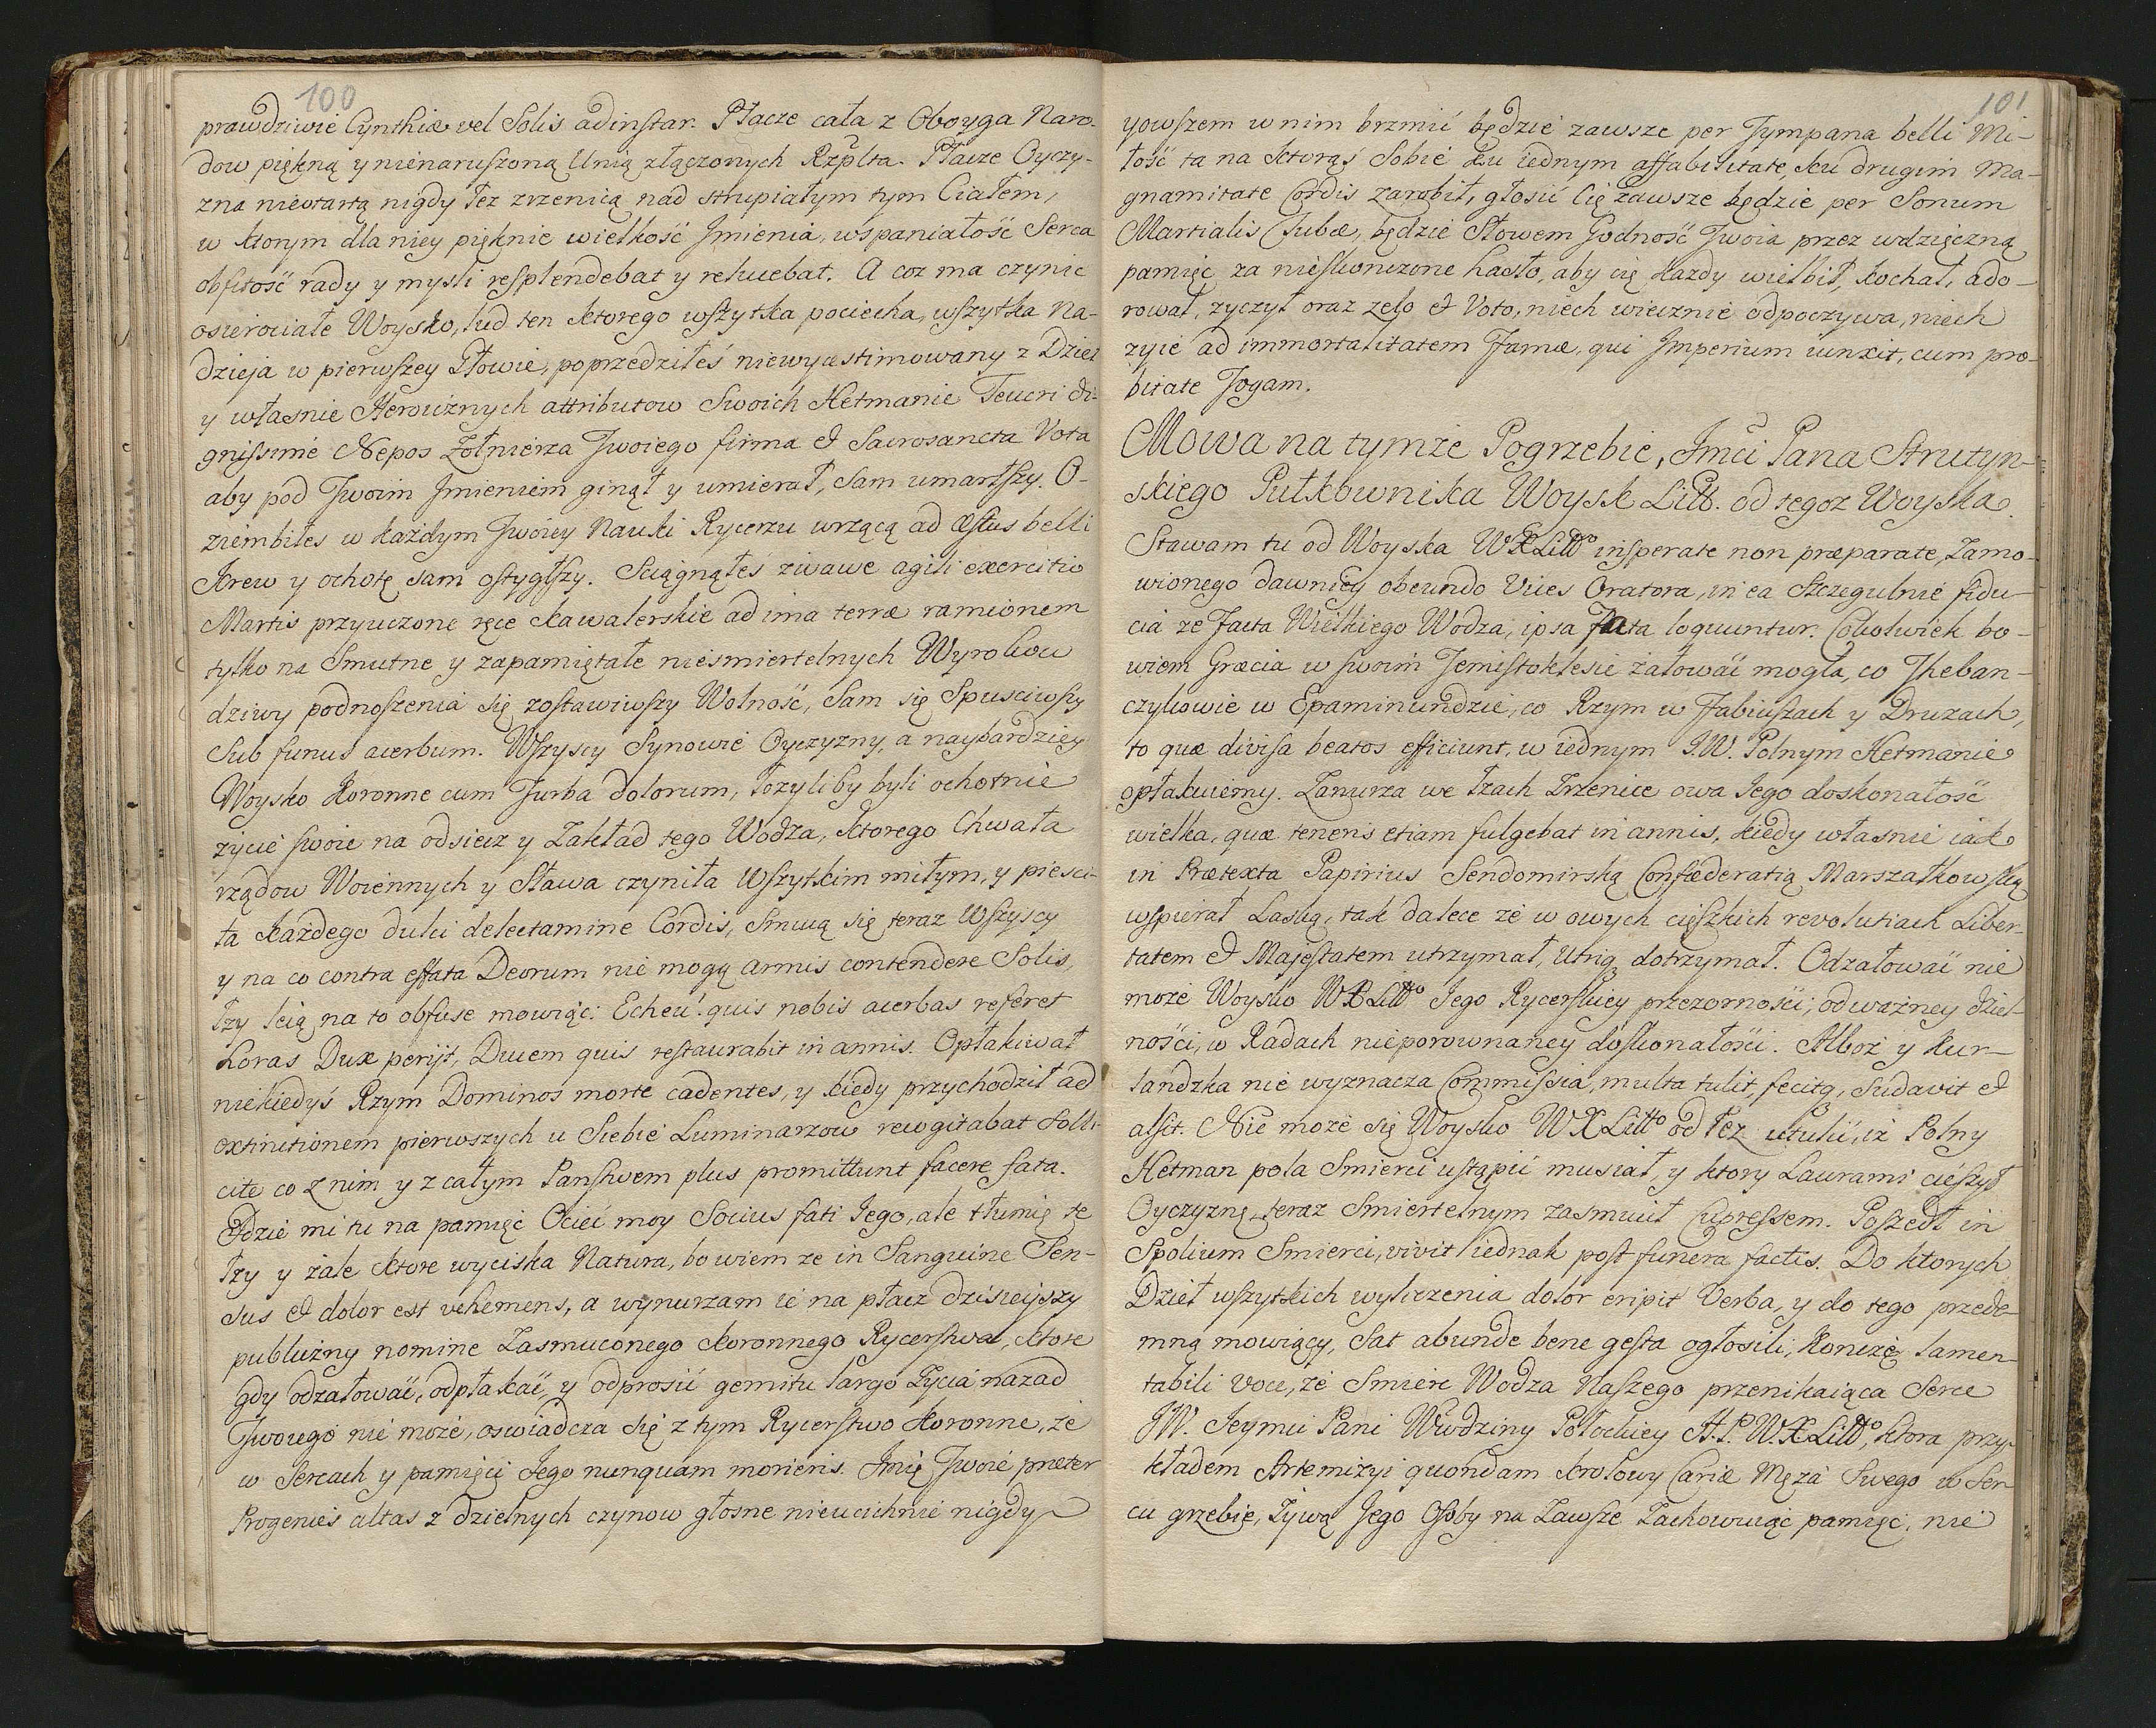 100
prawdziwie Cynthiæ vel Solis ad instar. Płacze cała z Oboyga Naro-
dow piękną y nienaruszoną Unią złączonych Rzplta. Płacze Oyczy-
zna nieotartą nigdy łez zrzenicą nad strupiałym tym Ciałem,
w ktorym dla niey pięknie wielkość Jmienia, wspaniałość Serca
obfitość rady y mysli resplendebat y relucebat. A coz ma czynic
osierociałe Woysko, lud ten ktorego wszytka pociecha, wszytka Na-
dzieja w pierwszey Głowie, poprzedziłeś niewyæstimowany z Dzieł
y własnie Heroicznych attributow Swoich Hetmanie Teucri di-
gnissime Nepos Zołnierza Twoiego firma et Sacrosancta Vota
aby pod Twoim Jmieniem ginął y umierał, Sam umarłszy. O-
ziembiłes w każdym Twoiey Nauki Rycerzu wrzącą ad æstus belli
Krew y ochotę sam ostygłszy. Sciągnąłeś zwawe agili exercitio
Martis przyuczone ręce Kawalerskie ad ima terræ ramionem
tylko na Smutne y zapamiętałe nieśmiertelnych Wyrokow
dziwy podnoszenia się zostawiwszy Wolność, Sam się Spusciwszy
Sub funus acerbum. Wszyscy Synowie Oyczyzny, a naybardziey
Woysko Koronne cum Turba dolorum, łozyliby byli ochotnie
zycie swoie na odsiecz y Zakład tego Wodza, ktorego Chwała
rządow Woiennych y Sława czyniła Wszytkim miłym, y piesci-
ła Każdego dulci delectamine Cordis, Smucą się teraz Wszyscy
y na co contra effata Deorum nie mogą armis contendere Solis,
łzy leią na to obfuse mowiąc: Echeu! quis nobis acerbas referet
horas Dux perijt, Ducem quis restaurabit in annis. Opłakiwał
niekiedyś Rzym Dominos morte cadentes, y kiedy przychodził ad
extinctionem pierwszych u Siebie Luminarzow recogitabat solli-
cite co z nim y z całym Panstwem plus promittunt facere fata.
Idzie mi tu na pamięć Ociec moy Socius fati Jego, ale tłumię te
łzy y żale ktore wyciska Natura, bo wiem ze in Sanguine Sen-
sus et dolor est vehemens, a wynurzam ie na płacz dzisieyszy
publiczny nomine Zasmuconego Koronnego Rycerstwa, ktore
gdy odzałować, odpłakać, y odprosić gemitu largo Zycia nazad
Twoiego nie może, oswiadcza się z tym Rycerstwo Koronne, że
w Sercach y pamięci Jego nunquam morieris. Jmię Twoie præter
Progenies altas z dzielnych czynow głosne nieucichnie nigdy
101
yowszem w nim brzmić będzie zawsze per Tympana belli Mi-
łość ta na Ktorąś Sobie ku iednym affabilitate, ku drugim Ma-
gnamitate Cordis zarobił, głosić Cię zawsze będzie per Sonum
Martialis Tubæ, będzie Słowem Godność Twoia przez wdzięczną
pamięć za nieskonczone hasło, aby cię Każdy wielbił, kochał, ado-
rował, zyczył oraz zelo et Voto, niech wiecznie odpoczywa, niech
zyie ad immortalitatem Famæ, qui Imperium iunxit, cum pro-
bitate Togam.
Mowa na tymże Pogrzebie, Jmci Pana Strutyn-
skiego Pułkownika Woysk Litt. od tegoz Woyska.
Stawam tu od Woyska W.X.Littō insperate non præparate, Zamo-
wionego dawniey obeundo Vices Oratora, in ea Szczegulnie fidu-
cia ze Facta Wielkiego Wodza, ipsa Facta loquuntur. Cokolwiek bo-
wiem Græcia w swoim Temistoklesie żałować mogła, co Theban-
czykowie w Epaminundzie, co Rzym w Fabiuszach y Druzach,
to quæ divisa beatos efficiunt, w iednym J.W. Polnym Hetmanie
opłakuiemy. Zanurza we łzach Zrzenice owa Jego doskonałość
wielka, quæ teneris etiam fulgebat in annis, kiedy własnie iak
in Prætexta Papirius Sendomirską Confæderatią Marszałkowską
wspierał Laską, tak dalece ze w owych cięszkich revolutiach Liber-
tatem et Majestatem utrzymał, Utrig dotrzymał. Odzałować nie
może Woysko W.X.Littō Jego Rycerskiey przezorności, odważney dziel-
ności, w Radach nieporownaney doskonałości. Alboż y Kur-
landzka nie wyznacza Commissia, multa tulit, fecitq, Sudavit et
alsit. Nie może się Woysko W.X.Littō od łez utulić, iż Polny
Hetman pola Smierci ustąpić musiał, y ktory Laurami cieszył
Oyczyznę, teraz Smiertelnym zasmucił Cupressem. Poszedł in
Spolium Smierci, vivit iednak post funera factis. Do ktorych
Dzieł wszytkich wyliczenia dolor eripit Verba, y do tego przede-
mną mowiący, Sat abunde bene gesta ogłosili, Konczę lamen-
tabili voce, że Smierć Wodza Naszego przenikaiąca Serce
JW. Jeymci Pani Wiwdziny Połockiey H.P.W.X.Littō, ktora przy-
kładem Artemizyi quondam Krolowy Cariæ Męża Swego w Ser-
cu grzebie, Zywą Jego Osoby na Zawsze Zachowuiąc pamięć, nie